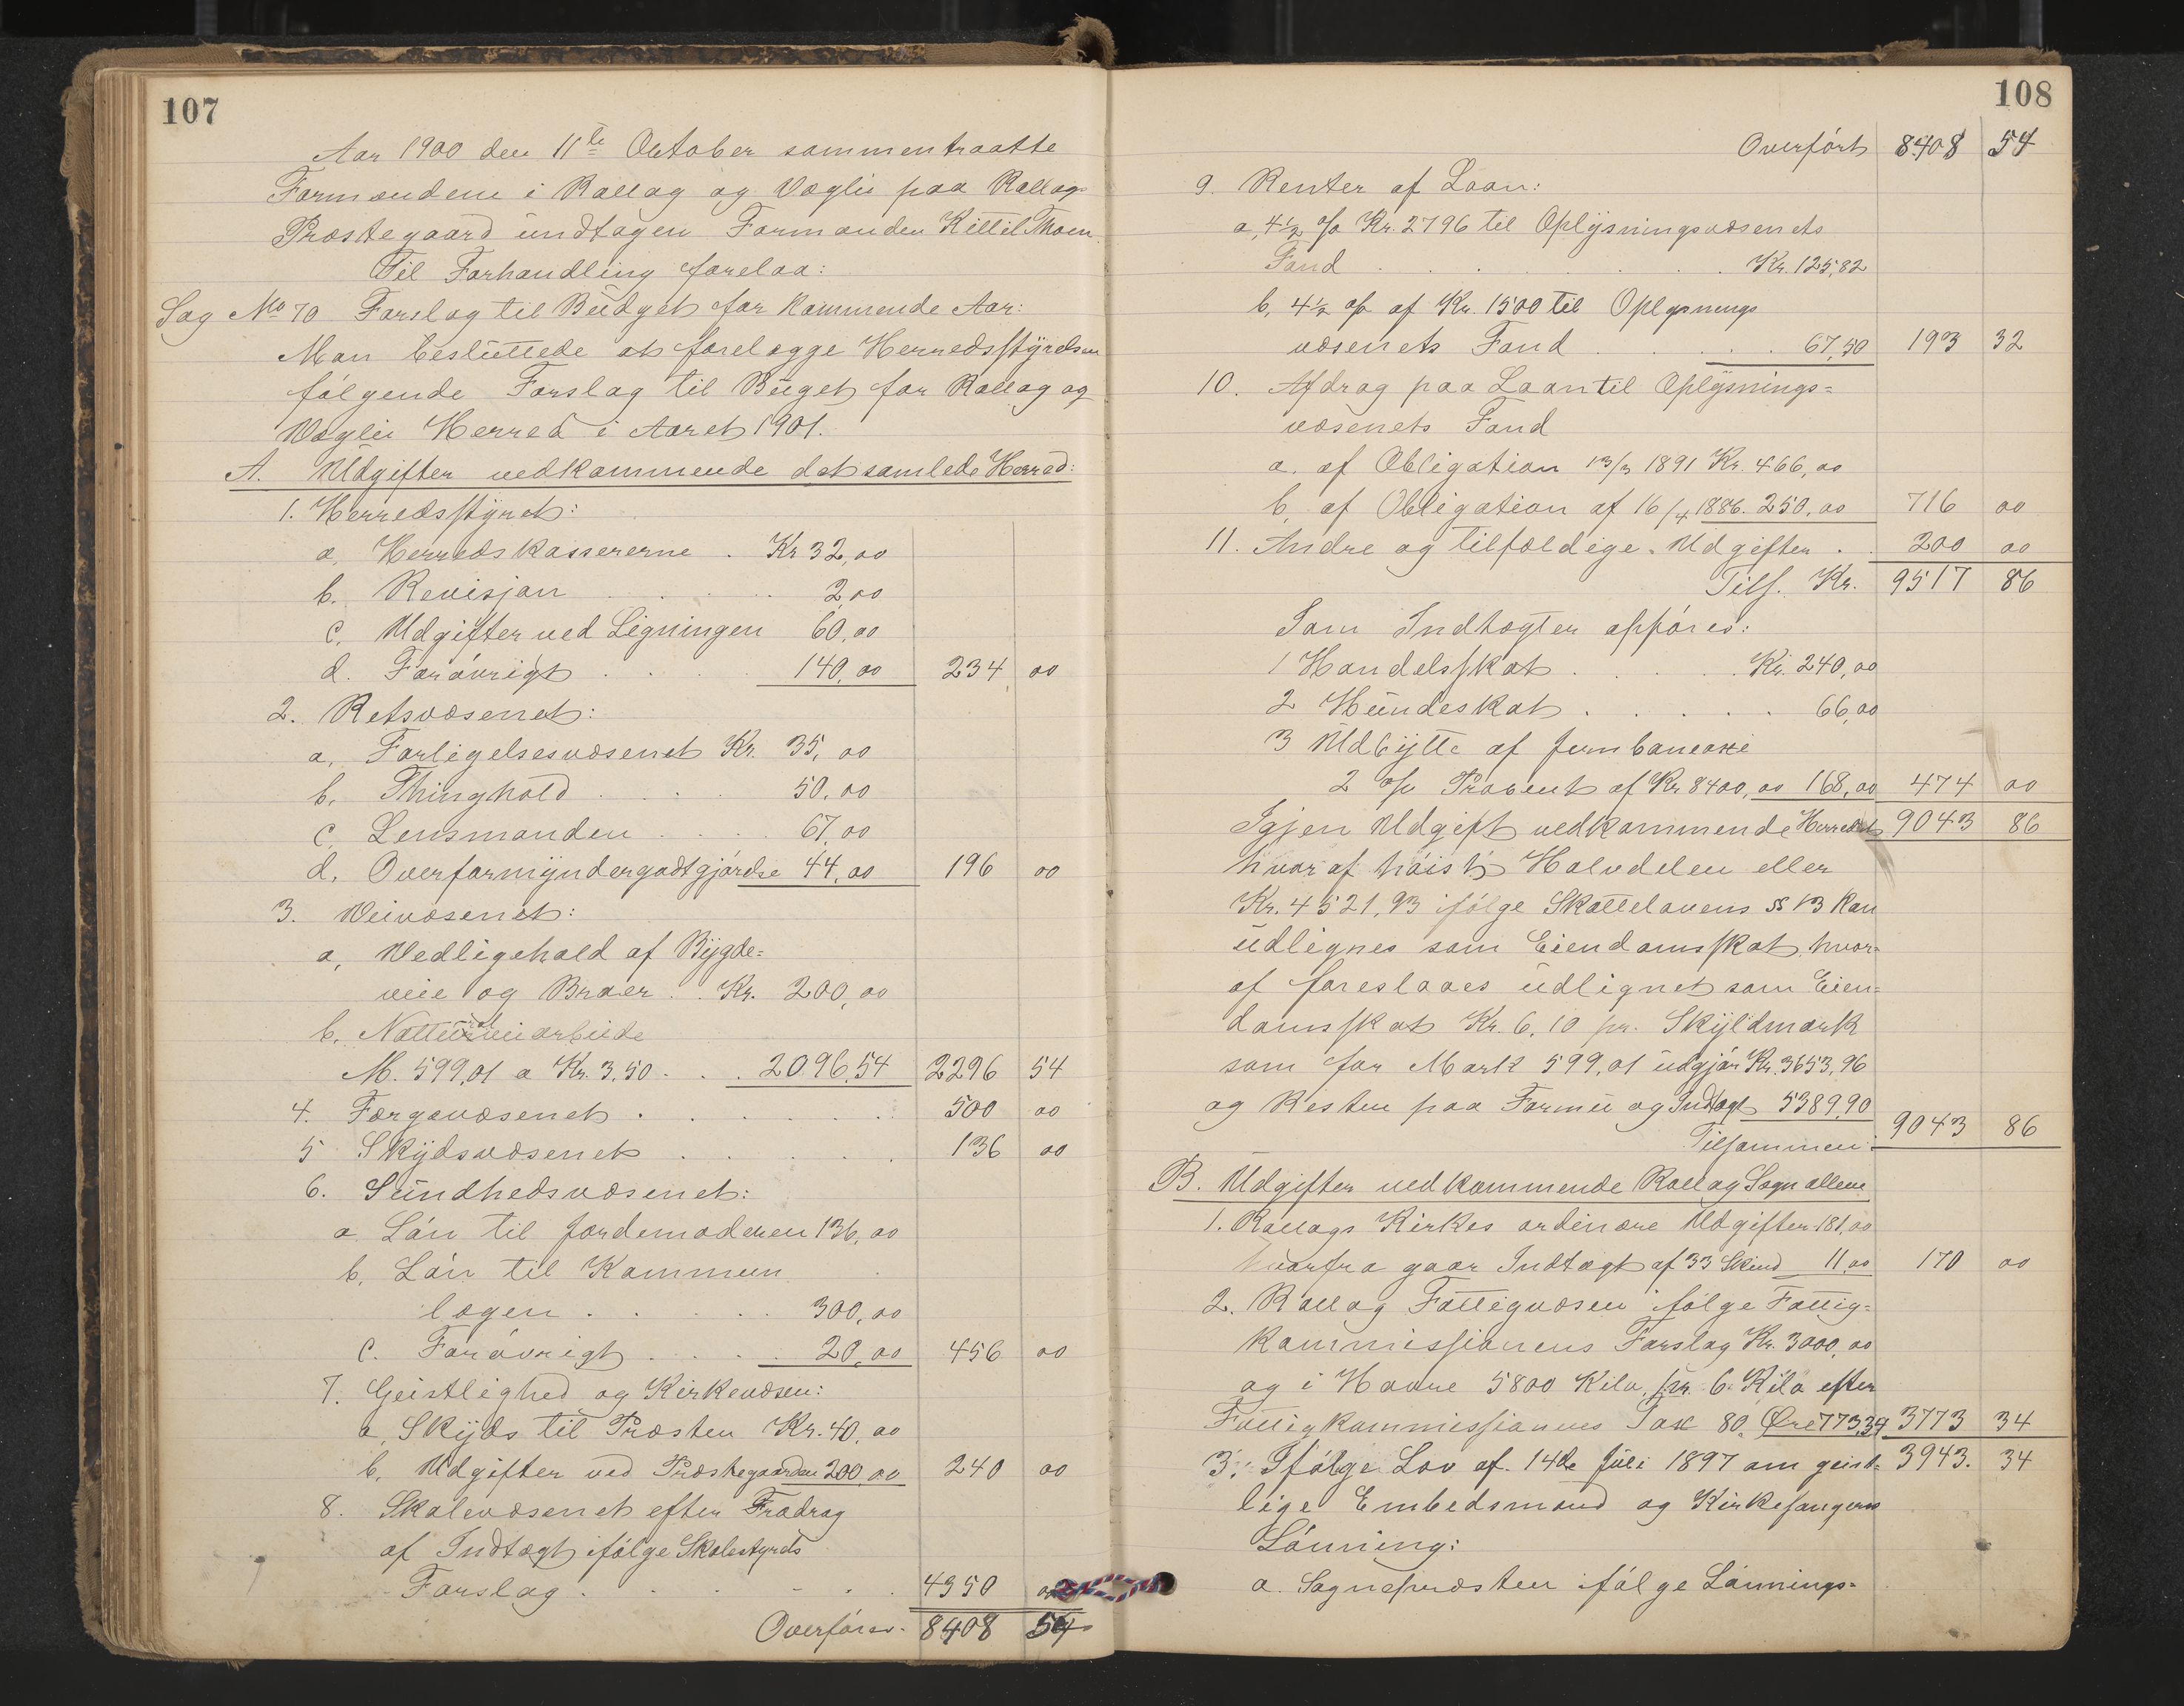 107
Aar 1900 den 11te October sammentraatte
Formændene i Rollag og Væglie paa Rollags
Præstegaard undtagen Formanden Kittil Thoen.
Til Forhandling forelaa:
Sag No 70 Forslag til Budget for kommende Aar:
Man besluttede at forelægge Herredsstyrelsen
følgende Forslag til Buget for Rollag og
Væglie Herred i Aaret 1901.
A. Udgifter vedkommende det samlede Herred:
1. Herredsstyret:
a, Herredskassererne . Kr 32,00
b. Revisjon . . . . . 2,00
c, Udgifter ved Ligningen 60,00
d. Forøvrigt . . . . 140,00 234 00
2. Retsvæsenet:
a, Forligelsesvæsenet Kr. 35,00
b, Thinghold . . . . 50,00
c, Lensmanden . . . . 67,00
d, Overformyndergodtgjørelse 44,00 196 00
3. Veivæsenet:
a, Vedligehold af Bygde=
veie og Broer . . Kr. 200,00
b. Natturalveiarbeide
M. 599,01 a Kr. 3,50 . . . 2096,54 2296 54
4. Færgevæsenet . . . . . . 500 00
5 Skydsvæsenet . . . . . 136 00
6. Sundhedsvæsenet:
a Løn til Jordemoderen 136,00
b, Løn til Kommun
lægen . . . . . 300,00
c. Forøvrigt . . . . 20,00 456 00
7. Geistlighed og Kirkevæsen:
a, Skyds til Præsten Kr. 40,00
b, Udgifter ved Præstegaarden 200,00 240 00
8. Skolevæsenet efter Fradrag
af Indtægt ifølge Skolestyrets
Forslag . . . . . . 4350 00
Overføres. 8408 54
108
Overført 8408 54
9. Renter af Laan:
a, 4½ % Kr. 2796 til Oplysningsvæsenets
Fond . . . . . . . Kr. 125,82
b, 4½ % af Kr. 1500 til Oplysnings
væsenets Fond . . . . . 67,50 193 32
10. Afdrag paa Laan til Oplysnings=
væsenets Fond
a. af Obligation 13/3 1891 Kr. 466,00
b, af Obligation af 16/4 1886. 250,00 716 00
11. Andre og tilfældige Udgifter . . 200 00
Tils. Kr. 9517 86
Som Indtægter opføres:
1 Handelsskat . . . . . Kr. 240,00
2 Hundeskat . . . . . 66,00
3 Udbytte af Jernbaneaxie
2 % Procent af Kr 8400,00 168,00 474 00
Igjen Udgift vedkommende Herredet 9043 86
hvoraf høist Halvdelen eller
Kr. 4521,93 ifølge Skattelovens § 13 kan
udlignes som Eiendomsskat, hvor=
af foreslaaes udlignet som Eien=
domsskat Kr. 6,10 pr. Skyldmark
som for Mark 599,01 udgjør Kr. 3653,96
og Resten paa Formue og Indtægt 5389,90
Tilsammen: 9043 86
B. Udgifter vedkommende Rollag Sogn allene
1. Rollags Kirkes ordinære Udgifter 181,00
hvorfra gaar Indtægt af 33 Skind 11,00 170 00
2. Rollag Fattigvæsen ifølge Fattig=
kommissionens Forslag Kr. 3000,00
og i Havre 5800 Kilo, pr. 6 Kilo efter
Fattigkommissionens Tax 80 Øre 773,34 3773 34
3. Ifølge Lov af 14de Juli 1897 om geist= 3943. 34
lige Embedsmænd og Kirkesangeres
Lønning:
a. Sognepræsten ifølge Lønnings=